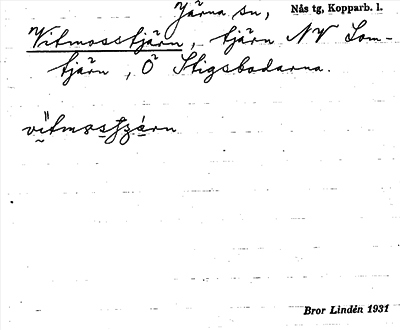 Järna sn, Nås tg, Kopparb. l.
Vitmosstjärn, tjärn NV Lom-
tjärn, Ö Stigsbodarna.
Bror Lindén 1931